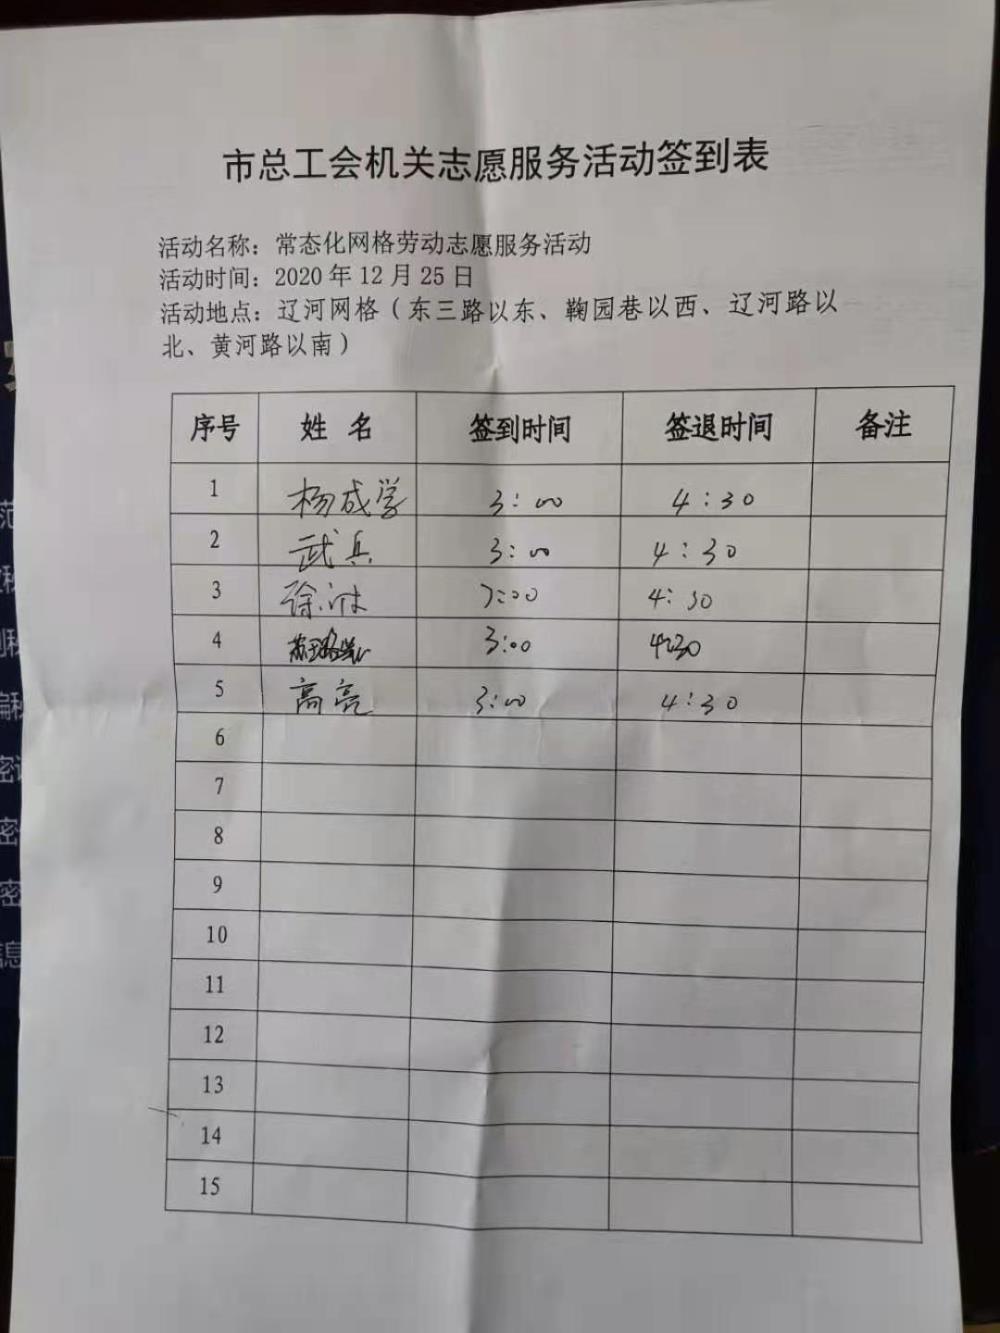 市总工会机关志愿服务活动签到表
活动名称：常态化网格劳动志愿服务活动
活动时间：2020年12月25日
活动地点：辽河网格（东三路以东、鞠园巷以西、辽河路以
北、黄河路以南）
序号 姓名 签到时间 签退时间 备注
1 杨成学 3:00 4:30
2 武兵 3:00 4:30
3 徐 3:00 4:30
4 3:00 4:30
5 高亮 3:00 4:30
6
7
8
9
10
11
12
13
14
15